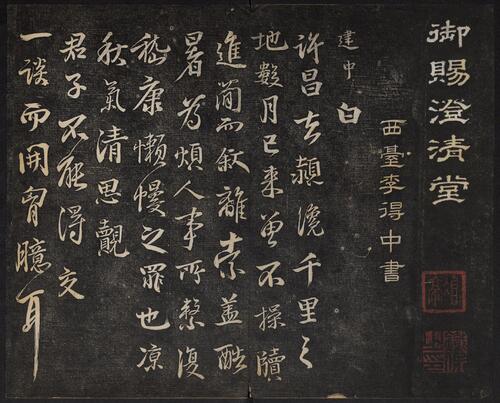 御賜澄清堂
西臺李得中書
建中
白
許昌去潁纔千里之
地數月已來曾不操牘
進簡而敘離索蓋酷
暑為煩人事所繫復
嵇康懶慢之罪也涼
秋氣清思覿
君子不能得交
一談而開胷臆耳